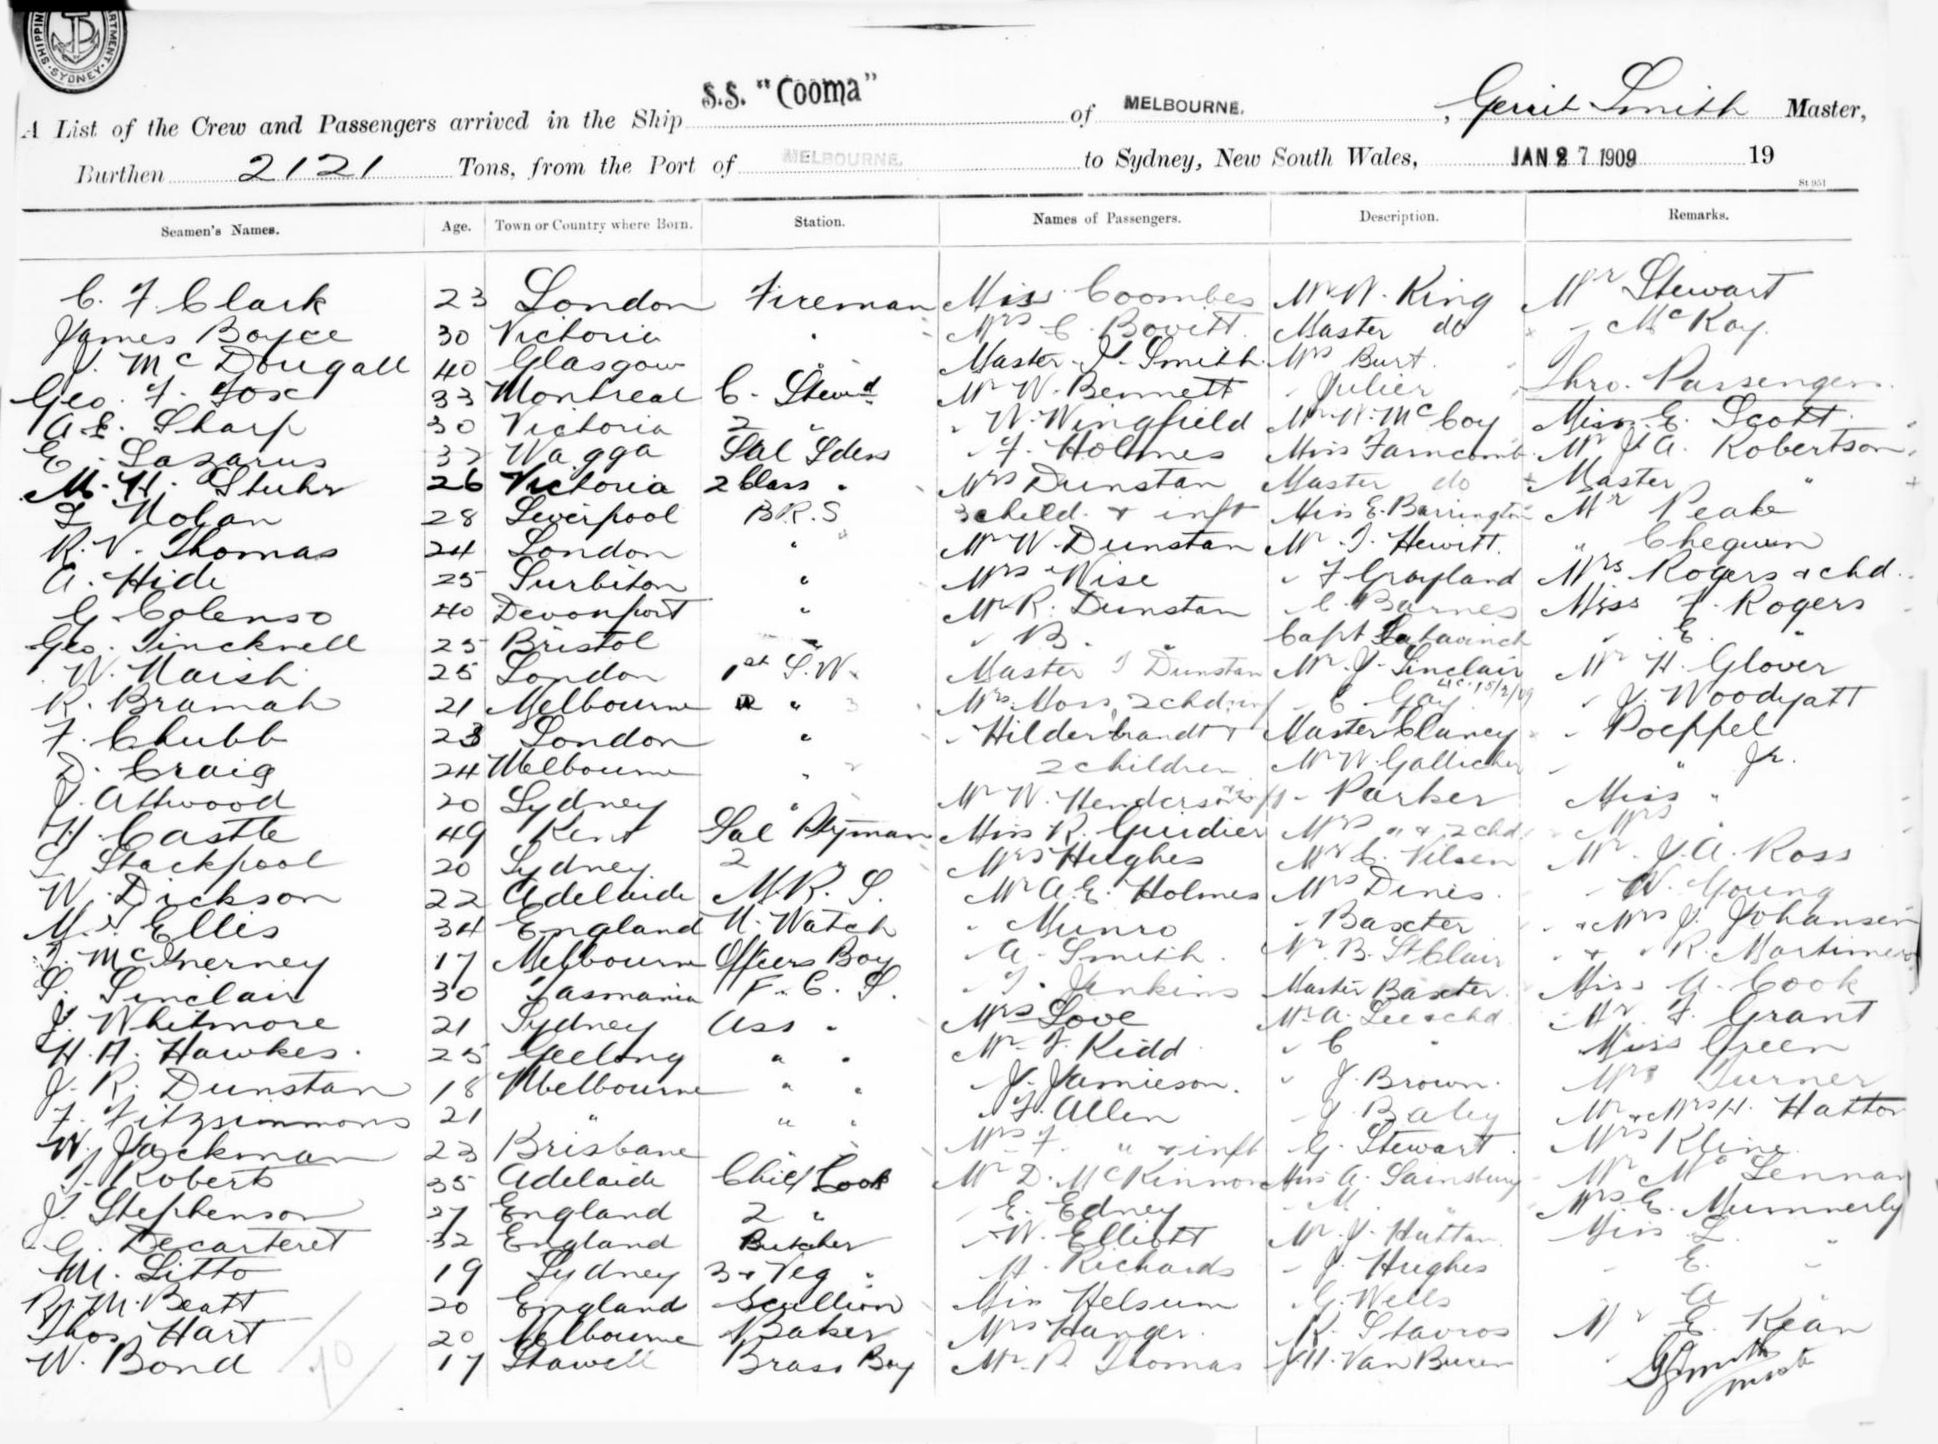 SHIPPING DEPARTMENT SYDNEY
S.S. "Cooma"
A List of the Crew and Passengers arrived in the Ship of MELBOURNE. , Gerrit Smith Master,
Burthen 2121 Tons, from the Port of MELBOURNE. to Sydney, New South Wales, JAN 27 1909 19
St 951
Seamen's Names. Age. Town or Country where Born. Station. Names of Passengers. Description. Remarks.
C. F. Clark 23 London Fireman Miss Coombes Mr W. King Mr Stewart
James Boyce 30 Victoria " Mrs C. Bovitt. Master do " McKay.
J. McDougall 40 Glasgow " Master J. Smith. Mrs Burt.
Geo. F. Fox 33 Montreal C. Stewd Mr W. Bennett " Julier Thro. Passengers.
A E. Sharp 30 Victoria 2 " " W. Wingfield Mr W. McCoy Miss E. Scott.
E. Lazarus 32 Wagga Sal Sders " F. Holmes Miss Farncomb Mr J. A. Robertson
M. H. Stuhr 26 Victoria 2 Class " Mrs Dunstan Master do Master "
L Nolan 28 Liverpool B.R.S 3 child. & inft Miss E. Barrington Mr Peake
R. V. Thomas 24 London " Mr W. Dunstan Mr. J. Hewitt. "
A. Hide 25 Surbiton " Mrs Wise " F Grayland Mrs Rogers & chd.
G. Colenso 40 Devonport " Mr R. Dunstan " C. Barnes Miss F. Rogers
Geo. Tincknell 25 Bristol " " B. " Capt " E. "
W. Naish 25 London 1st S.W. Master J Dunstan Mr. J. Sinclair Mr H. Glover
R. Bramah 21 Melbourne " Mrs. Moss, 2 chd, inf " E Gay " J. Woodyatt
F. Chubb 23 London " " Hilderbrandt & Master Clancy " Poeppel
D. Craig 24 Melbourne " 2 children Mr W. Gallicher " " Jr.
J. Attwood 20 Sydney " Mr W. Henderson " Parker Miss "
H. Castle 49 Kent Sal Ptyman Miss R. Guidier Mrs " & 2 chd. Mrs "
L Stackpool 20 Sydney 2 " Mrs Hughes Mr C. Nilsen Mr. J. A. Ross
W. Dickson 22 Adelaide M.R. S. Mr A. E. Holmes Mrs Dinis. " W. Young
M. J. Ellis 34 England N. Watch " Munro " Baxter " & Mrs J. Johansen
J. McInerney 17 Melbourne Officers Boy " A. Smith. Mr. B. St Clair " & " R. Mortimer
S. Sinclair 30 Tasmania F. C. S. " J. Jenkins Master Baxter. Miss A. Cook
J. Whitmore 21 Sydney Ass " Mrs Love Mr A. Lee & chd Mr. F. Grant
H. A. Hawkes. 25 Geelong " " Mr. F. Kidd " C " Miss Green
J. R. Dunstan 18 Melbourne " " " J. Jamieson. " J. Brown. Mrs Turner
F. Fitzsimmons 21 " " " " F. Allen " J. Baley Mr & Mrs H. Hatton
W. Jackman 23 Brisbane " " Mrs F. " & inft " G. Stewart. Mrs Kline
J. Roberts 35 Adelaide Chief Cook Mr D. McKinnon Miss A. Sainsbury Mr McLennan
J. Stephenson 27 England 2 " " E. Edney " M. " Mrs. E. Mummerly
G. Decarteret 32 England Butcher " W. Elliott Mr. J. Hutton. Miss L. "
M. Litto 19 Sydney 3 & Veg " " H. Richards " J. Hughes " E. "
R. M. Beatt 20 England Scullion Miss Helsum " G. Wells " A "
Thos Hart 20 Melbourne Baker Mrs Hanger. " K. Stavros Mr E. Kean
W. Bond 17 Stawell Brass Boy Mr. R Thomas J. H. Van Buren
70
G Smith